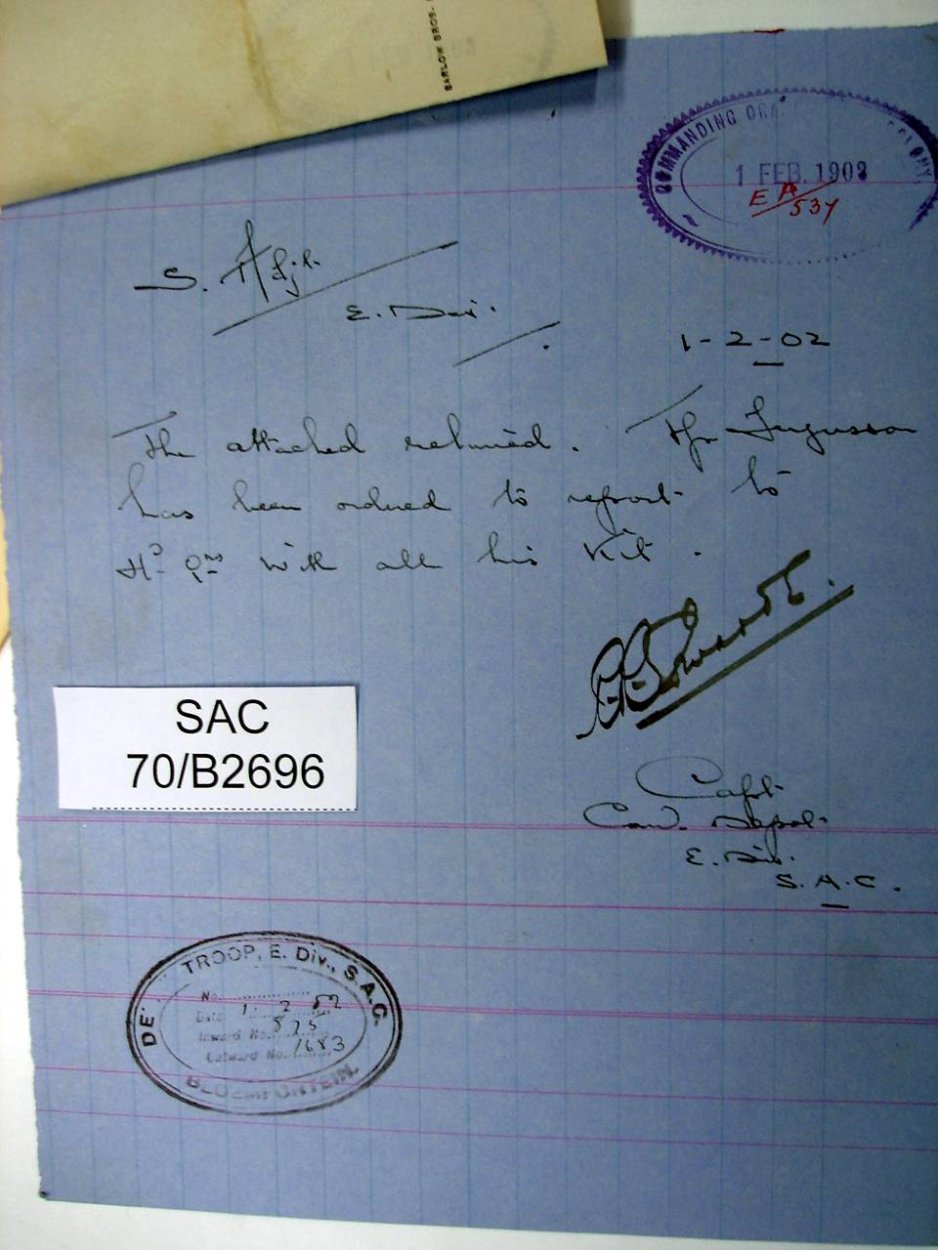 BARLOW BROS.
COMMANDING ORA
1 FEB. 1902
EA/537
S. Adjt.
E. Div.
1-2-02
The attached returned. Tpr Fergusson
has been ordered to report to
Hd Qrs with all his Kit.
Capt
Com. Depot
E. Div.
S.A.C.
SAC
70/B2696
DE TROOP, E. Div., S.A.C.
No.
Date 1. 2 02
Inward No. 575
Outward No. 1683
BLOEMFONTEIN.